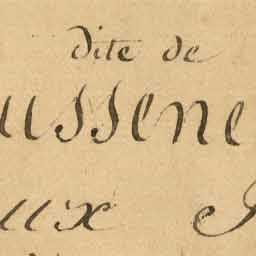 dite de
ussene
ux